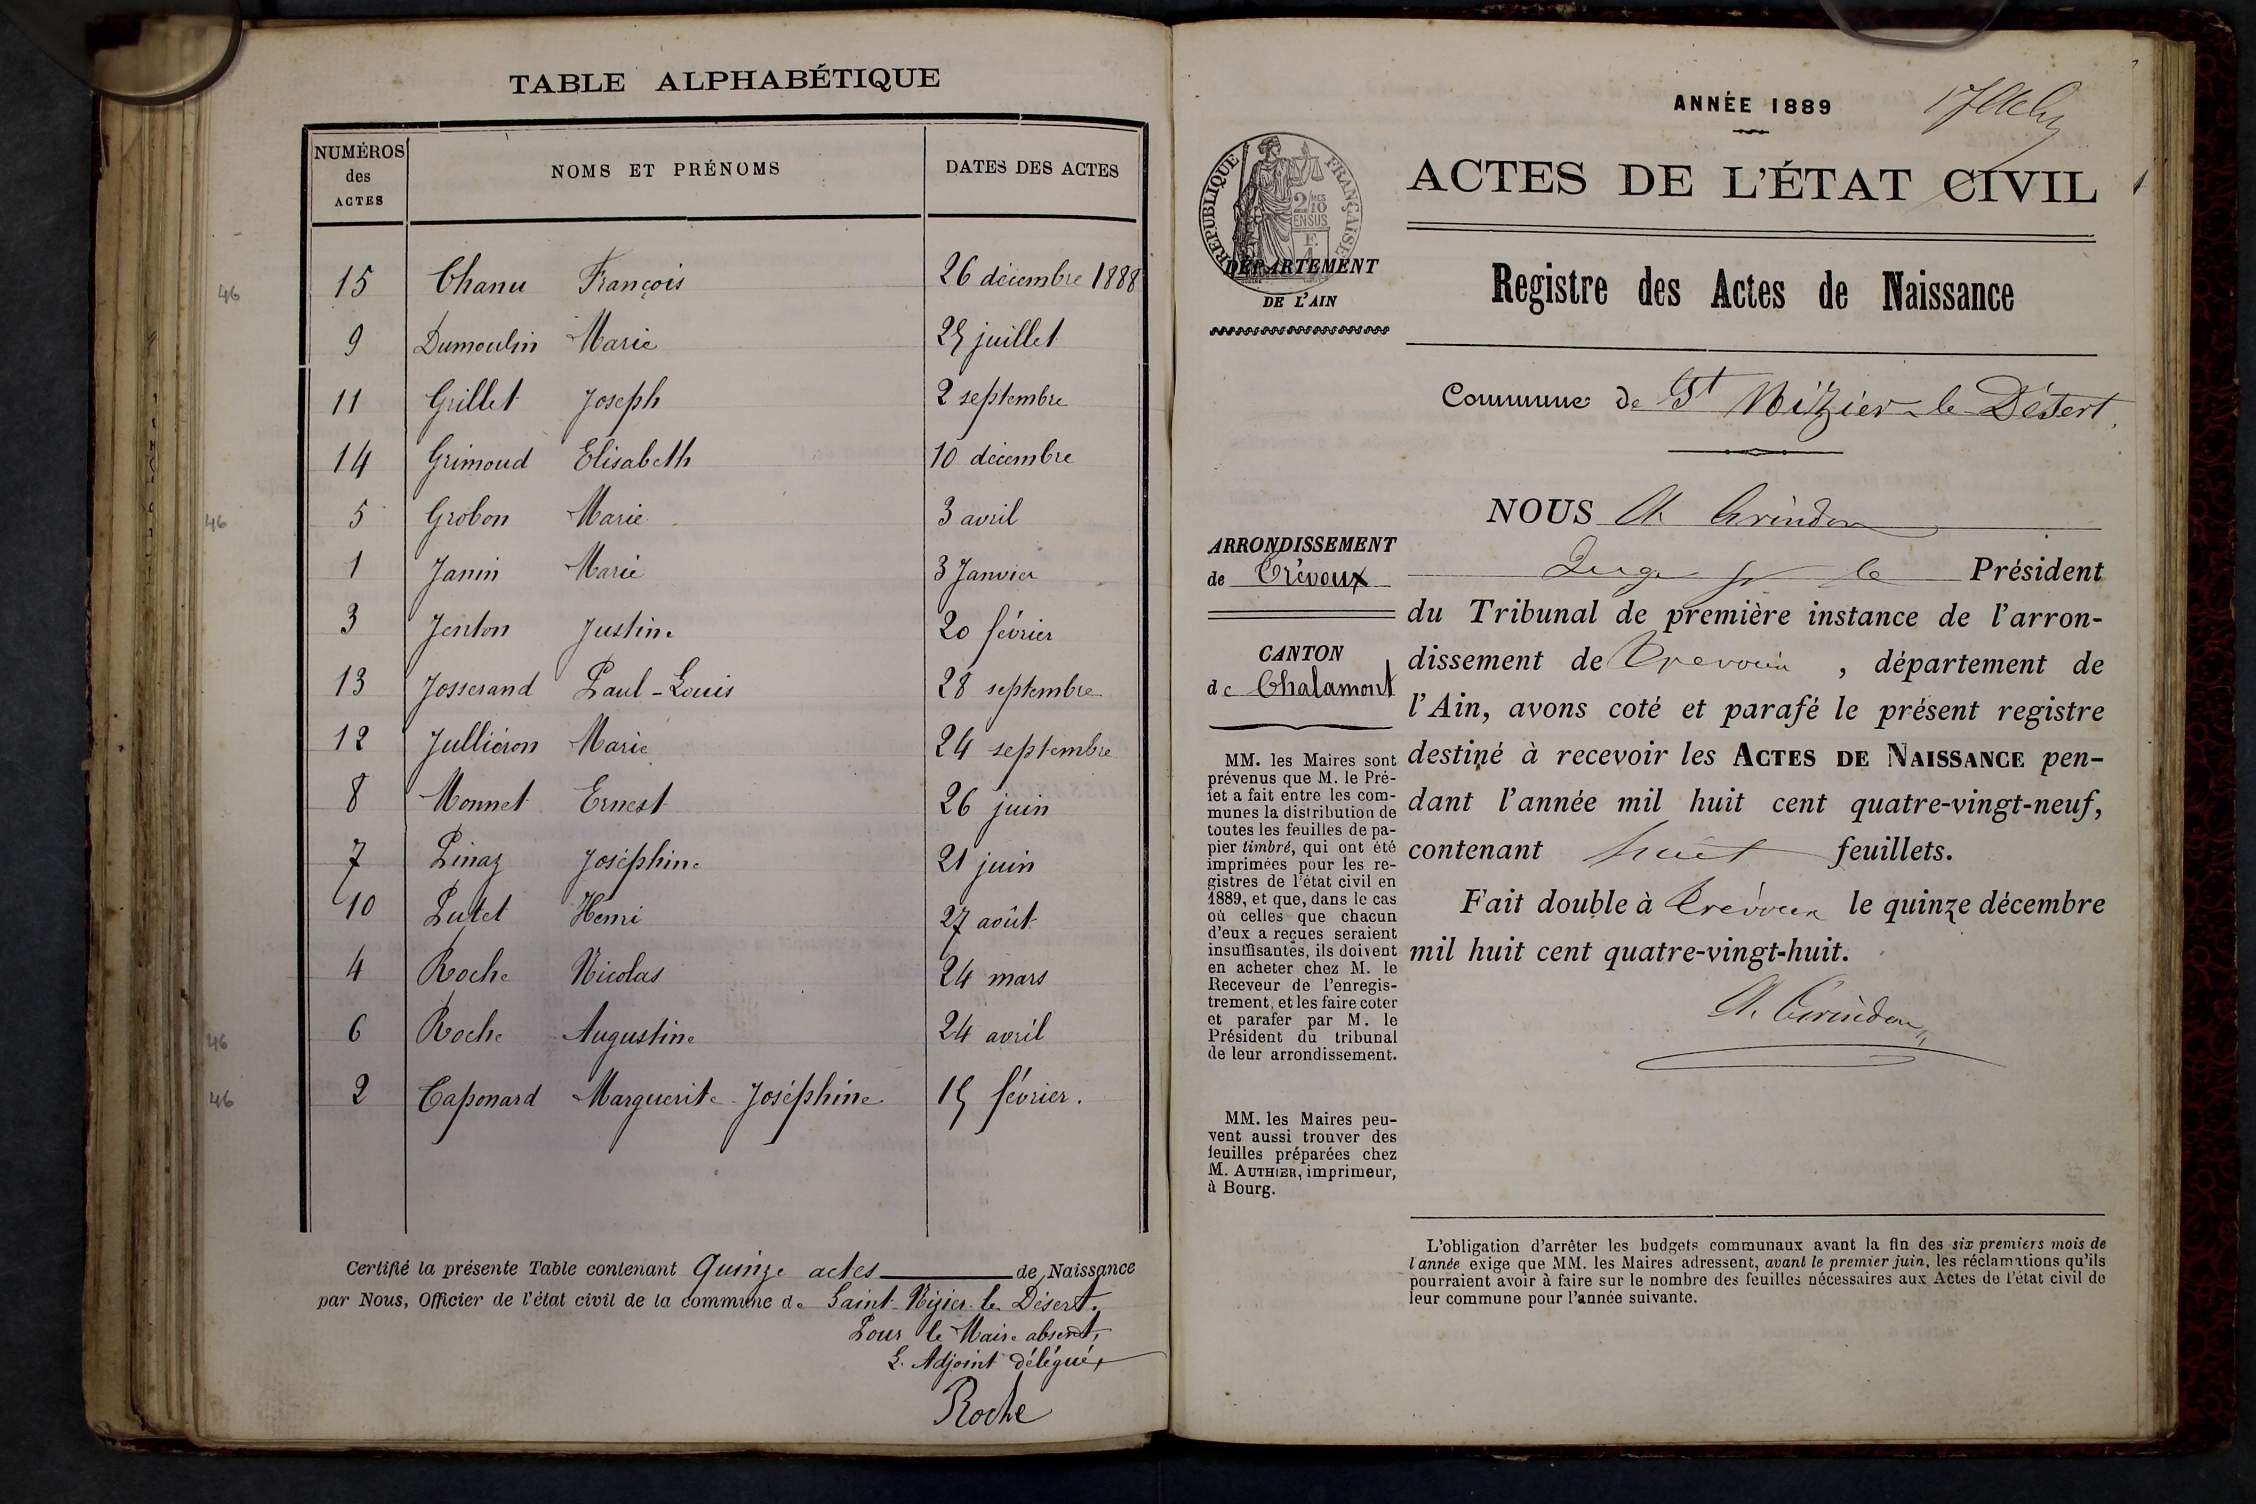 TABLE ALPHABÉTIQUE
NUMÉROS des ACTES NOMS ET PRÉNOMS DATES DES ACTES
46 15 Chanu François 26 décembre 1888
9 Dumoulin Marie 25 juillet
11 Grillet Joseph 2 septembre
14 Grimoud Elisabeth 10 décembre
46 5 Grobon Marie 3 avril
1 Janin Marie 3 Janvier
3 Jenton Justine 20 février
13 Josserand Paul-Louis 28 septembre
12 Julliéron Marie 24 septembre
8 Monnet Ernest 26 juin
7 Pinaz Joséphine 21 juin
10 Putet Henri 27 août
4 Roche Nicolas 24 mars
46 6 Roche Augustine 24 avril
46 2 Taponard Marguerite Joséphine 15 février.
Certifié la présente Table contenant Quinze actes de Naissance
par Nous, Officier de l'état civil de la commune de Saint-Nizier-le Désert.
Pour le Maire absent,
L'Adjoint délégué,
Roche
ANNÉE 1889
ACTES DE L'ÉTAT CIVIL 1
RÉPUBLIQUE FRANÇAISE
2/10 EN SUS
DÉPARTEMENT
DE L'AIN
Registre des Actes de Naissance
Commune de St Nizier-le-Désert.
ARRONDISSEMENT
de Trévoux
CANTON
de Chalamont
MM. les Maires sont
prévenus que M. le Pré-
fet a fait entre les com-
munes la distribution de
toutes les feuilles de pa-
pier timbré, qui ont été
imprimées pour les re-
gistres de l'état civil en
1889, et que, dans le cas
où celles que chacun
d'eux a reçues seraient
insuffisantes, ils doivent
en acheter chez M. le
Receveur de l'enregis-
trement, et les faire coter
et parafer par M. le
Président du tribunal
de leur arrondissement.
MM. les Maires peu-
vent aussi trouver des
feuilles préparées chez
M. AUTHIER, imprimeur,
à Bourg.
NOUS A. Grindon
Juge pr le Président
du Tribunal de première instance de l'arron-
dissement de Trévoux, département de
l'Ain, avons coté et parafé le présent registre
destiné à recevoir les ACTES DE NAISSANCE pen-
dant l'année mil huit cent quatre-vingt-neuf,
contenant huit feuillets.
Fait double à Trévoux le quinze décembre
mil huit cent quatre-vingt-huit.
A. Grindon
L'obligation d'arrêter les budgets communaux avant la fin des six premiers mois de
l'année exige que MM. les Maires adressent, avant le premier juin, les réclamations qu'ils
pourraient avoir à faire sur le nombre des feuilles nécessaires aux Actes de l'état civil de
leur commune pour l'année suivante.